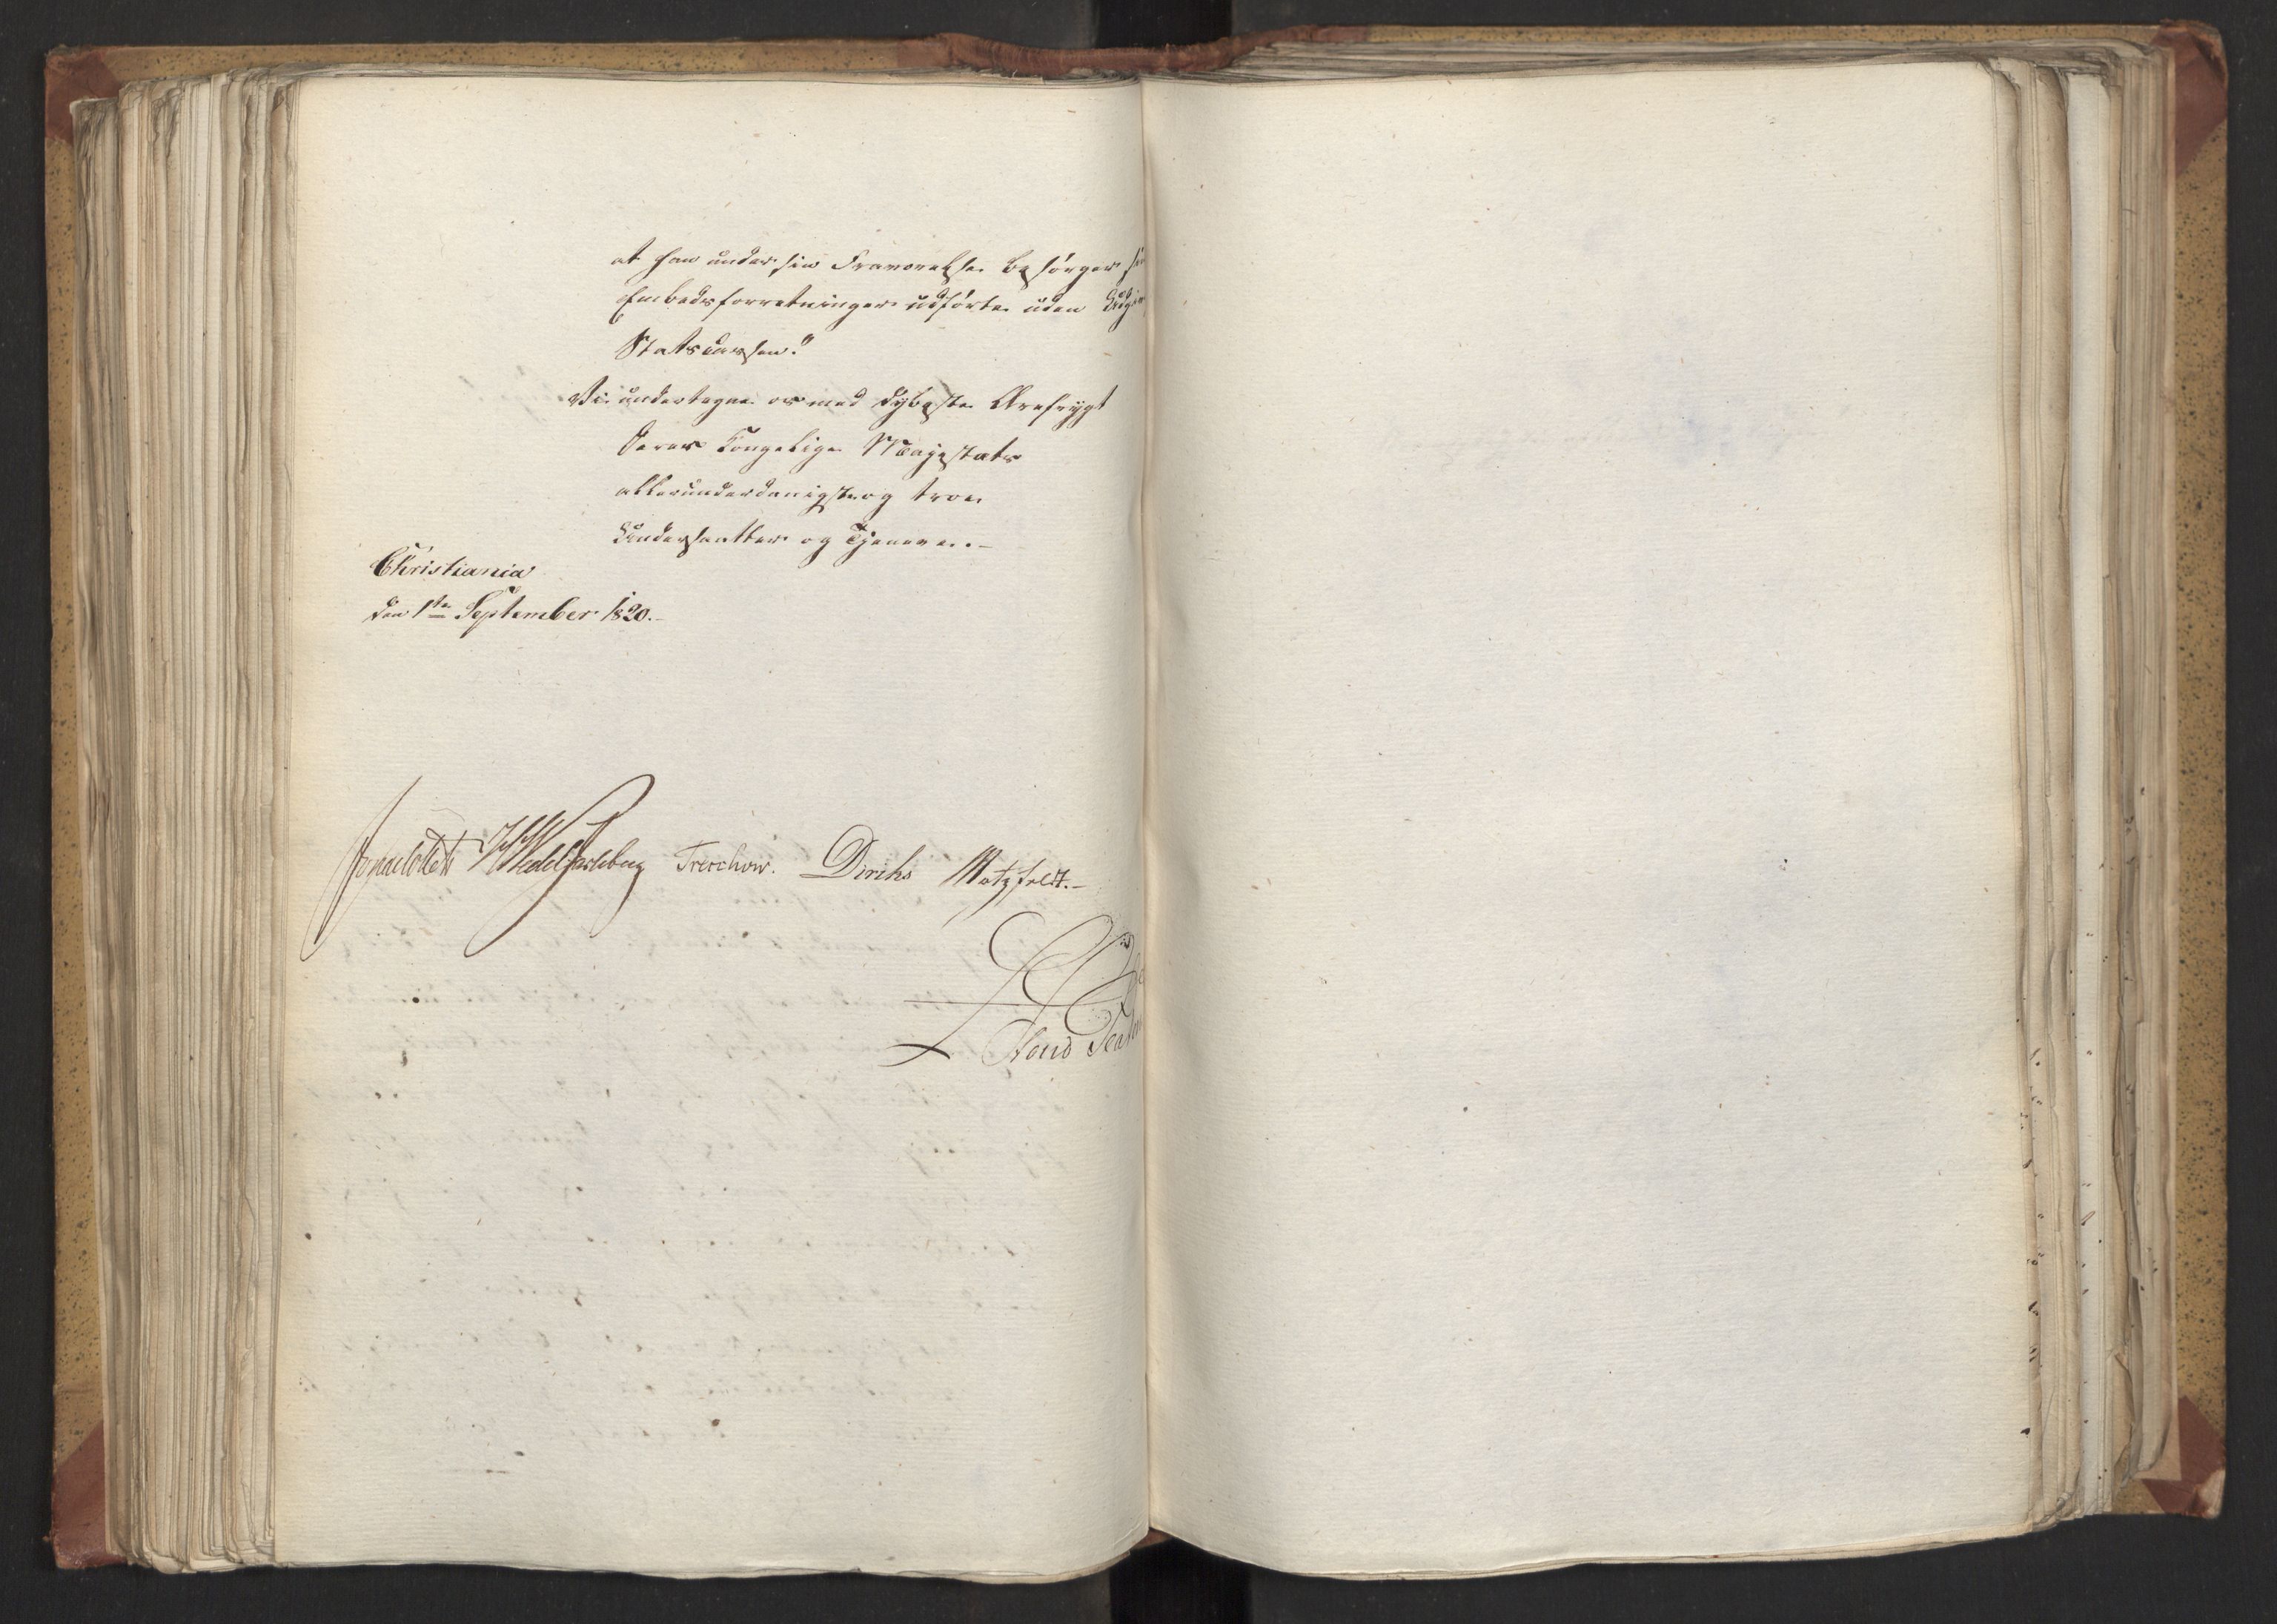 at han under sin Fraværelse besørger sin
Embedsforretninger udførte uden Udgivt
Statscassen."
Vi undertegne os med dybeste Ærefrygt
Deres Kongelige Majestæts
allerunderdanigste og troe
Undersaatter og Tjenere.-
Christiania
den 1ste September 1820.-
Wedel Jarlsberg Treschow. Diriks Motzfeldt.-